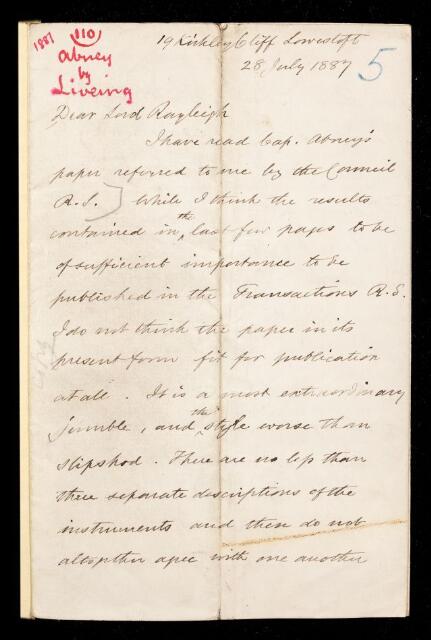 1887
110
Abney
by
Liveing
5
19 Kirkley Cliff Lowestoft
28 July 1887
Dear Lord Rayleigh
I have read Cap. Abney's
paper referred to me by the Council
R.S.] While I think the results
contained in the last few pages to be
of sufficient importance to be
published in the Transactions R.S.
I do not think the paper in its
present form fit for publication
at all. It is a most extraordinary
jumble, and the style worse than
slipshod. There are no less than
three separate descriptions of the
instruments and these do not
altogether agree with one another